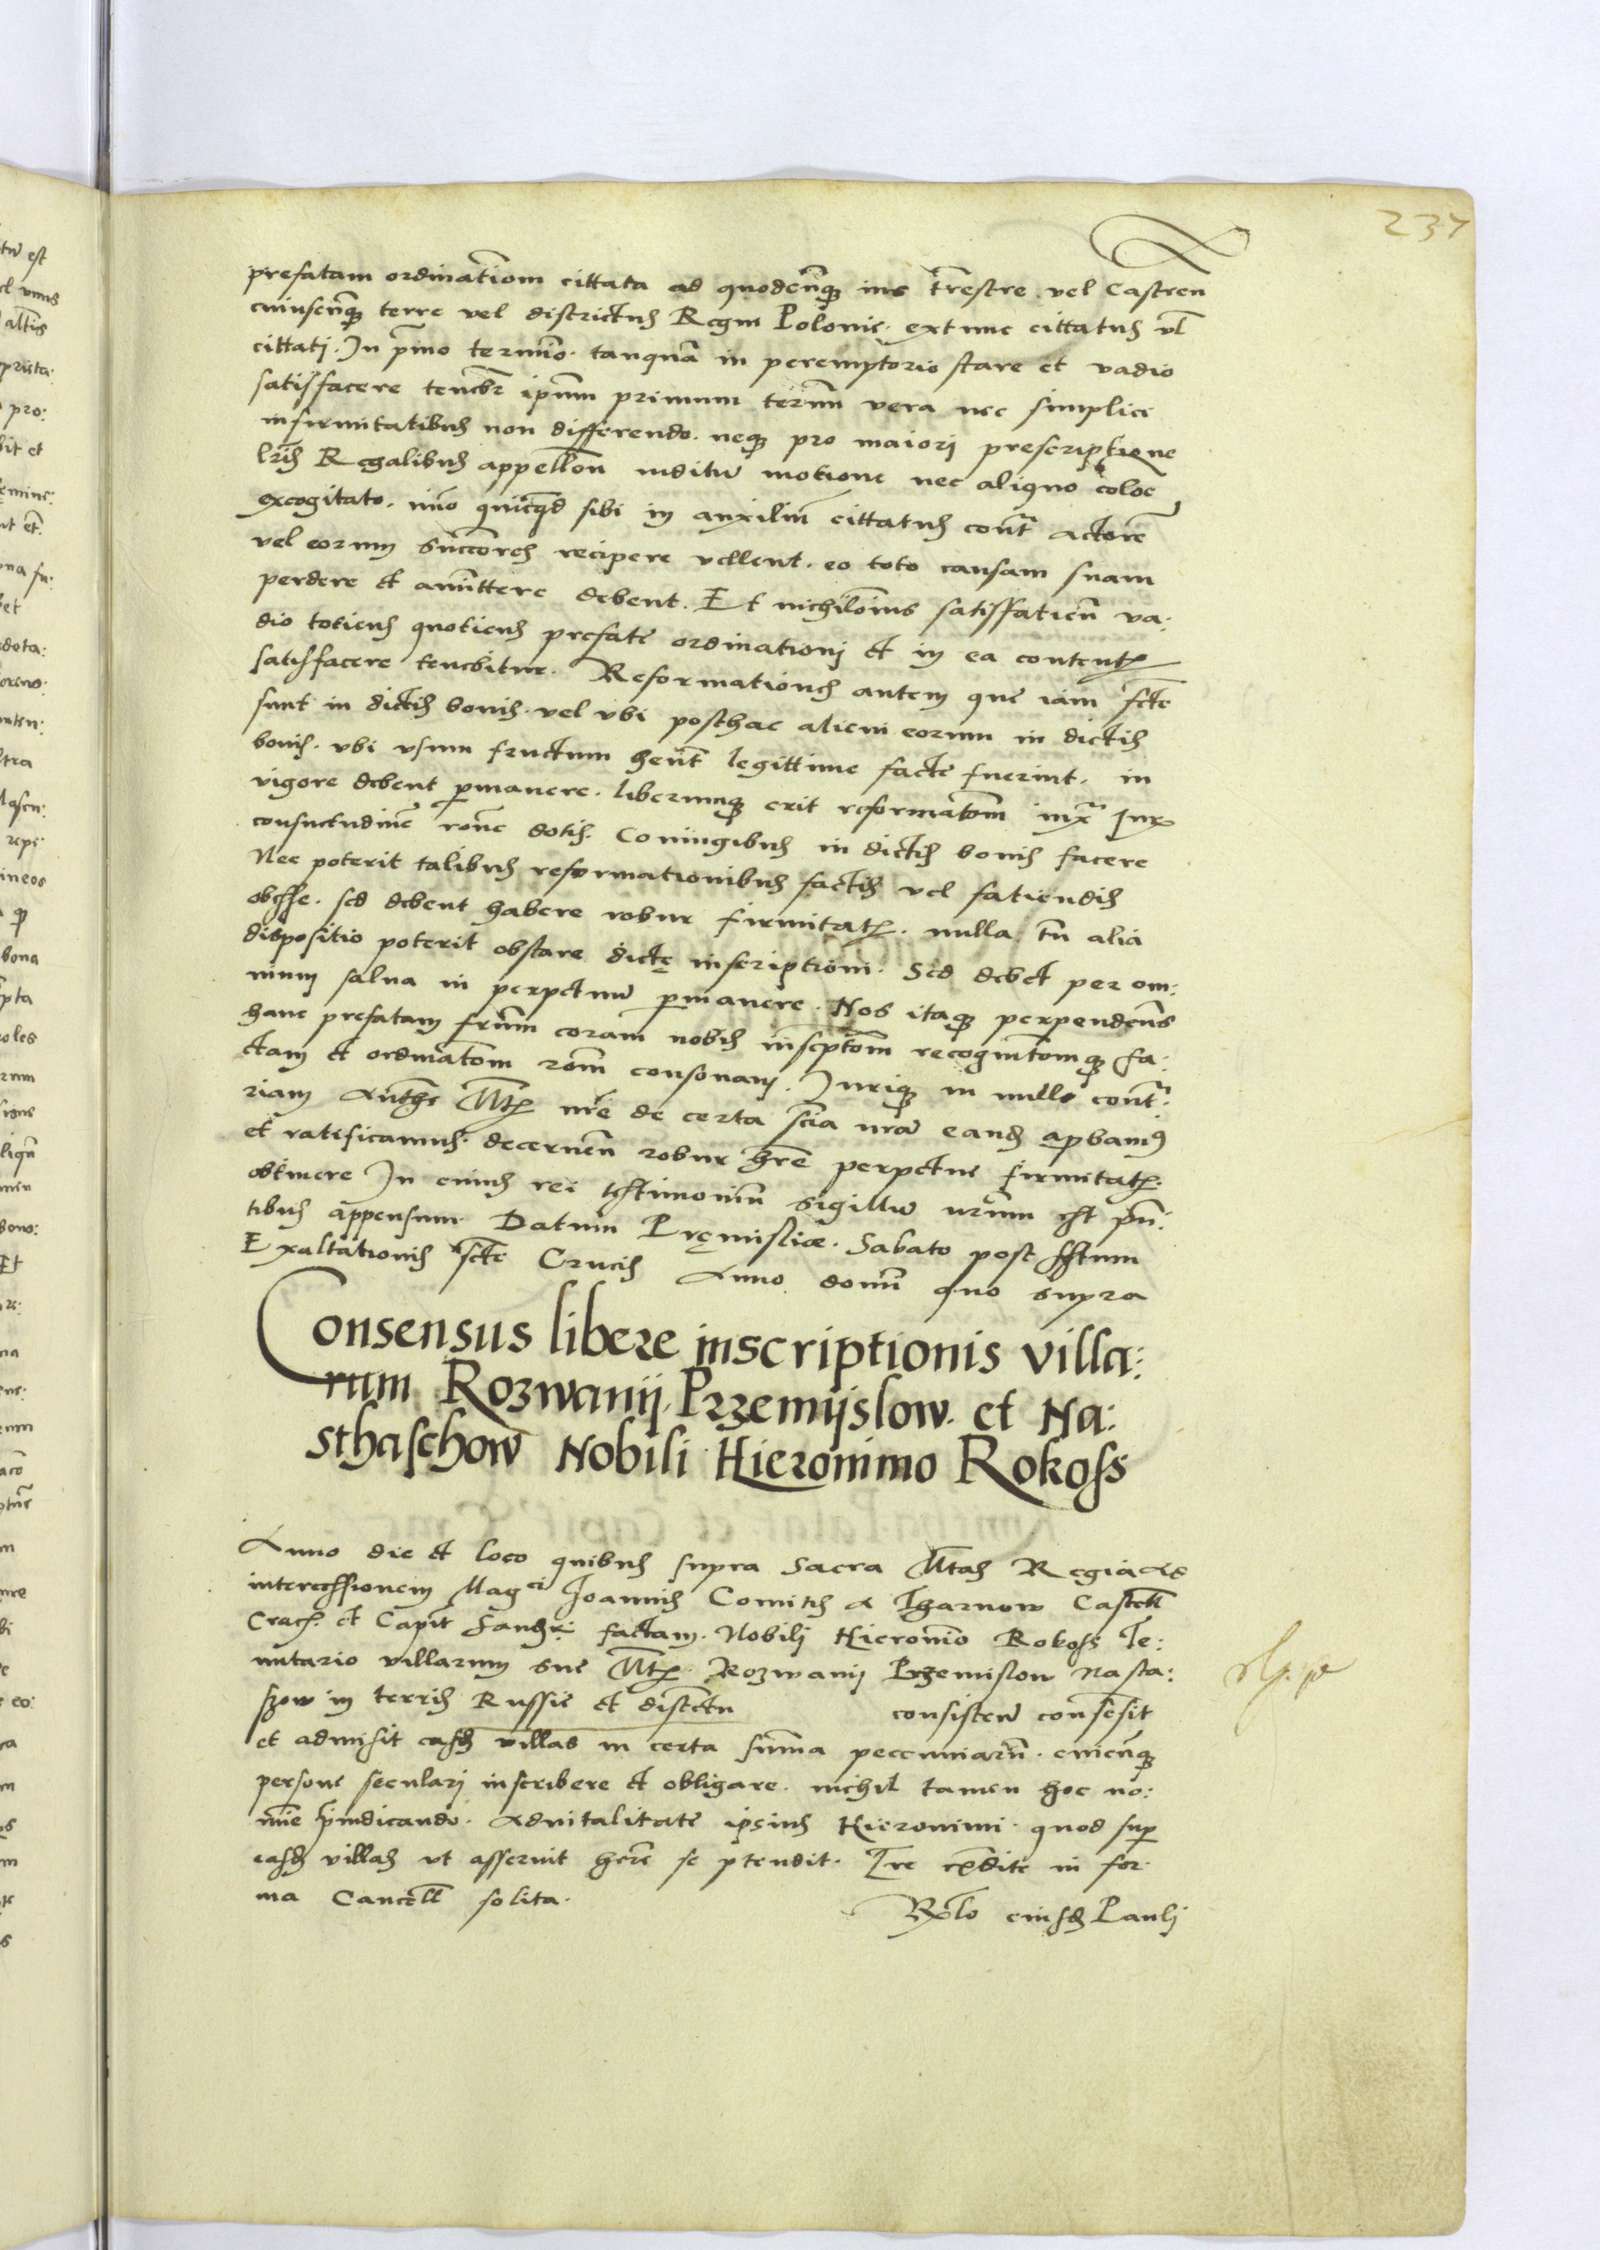 237
prefatam ordinatiom cittata ad quodcunq ius trrestre vel Castren
cuiuscunq terre vel districtus Regni Polonie extunc cittatus vl
cittati. In pmo termino tanquam in peremptorio stare et vadio
satisfacere tenebr ipsum primum terminum vera nec simplici
infirmitatibus non differendo. neq pro maiori prescriptione
lris Regalibus appellon motione nec aliquo colore
excogitato. imo quicqd sibi in auxilium cittatus contr actore
vel eorum succores recipere vellent. eo toto causam suam
perdere et amittere debent. Et nichilomins satisfatien va:
dio totiens quotiens prefate ordinationi et in ea content
satisfacere tenebitur. Reformationes autem que iam fcte
sunt in dictis bonis. vel ubi posthac alicui eorum in dictis
bonis. ubi usum fructum hent legittime facte fuerint. in
vigore debent pmanere. liberumq erit reformatom iuxta
consuetudine rone dotis. Coniugibus in dictis bonis facere
Nec poterit talibus reformationibus factis vel fatiendis
obesse. sed debent habere robur firmitat. nulla tn alia
dispositio poterit obstare dictę inscriptioni. Sed debet per om:
nium salva in perpetuu pmanere. Nos itaq perpendens
hanc prefatam frum coram nobis inscptom recognitomq fa:
ctam et ordinatom rom consonam. Iuriq in nullo contr:
riam Auth Mt nre de certa scia nra eand apbamus
et ratificamus. decernen robur hre perpetue firmitat
obtinere In cuius rei testimonium sigillu nrum est pn:
tibus appensum. Datum Pręmislie. Sabato post festum
Exaltationis scte Crucis Anno domni quo supra
Consensus libere inscriptionis villa:
rum Rozwanij. Przemijslow. et Na:
sthaschow Nobili Hieronimo Rokoss
Anno die et loco quibus supra Sacra Mtas Regia ad
intercessionem Magci Joannis Comitis a Tharnow Castell
Crac. et Capit factam. Nobili Hieronimo Rokoss Te:
nutario villarum sue Mt. Rozwanij Przemislow Nasta:
szow in terris Russie et distctu consisten consesit
et admisit easd villas in certa suma peccuniarum. cuicunq
persone seculari inscribere et obligare. nichil tamen hoc no:
mie piudicando. advitalitate ipsius Hieronimi. quod sup
easd villas ut asseruit here se ptendit. Lre exdite in for
ma Cancell solita.
Rlo eiusd Pauli